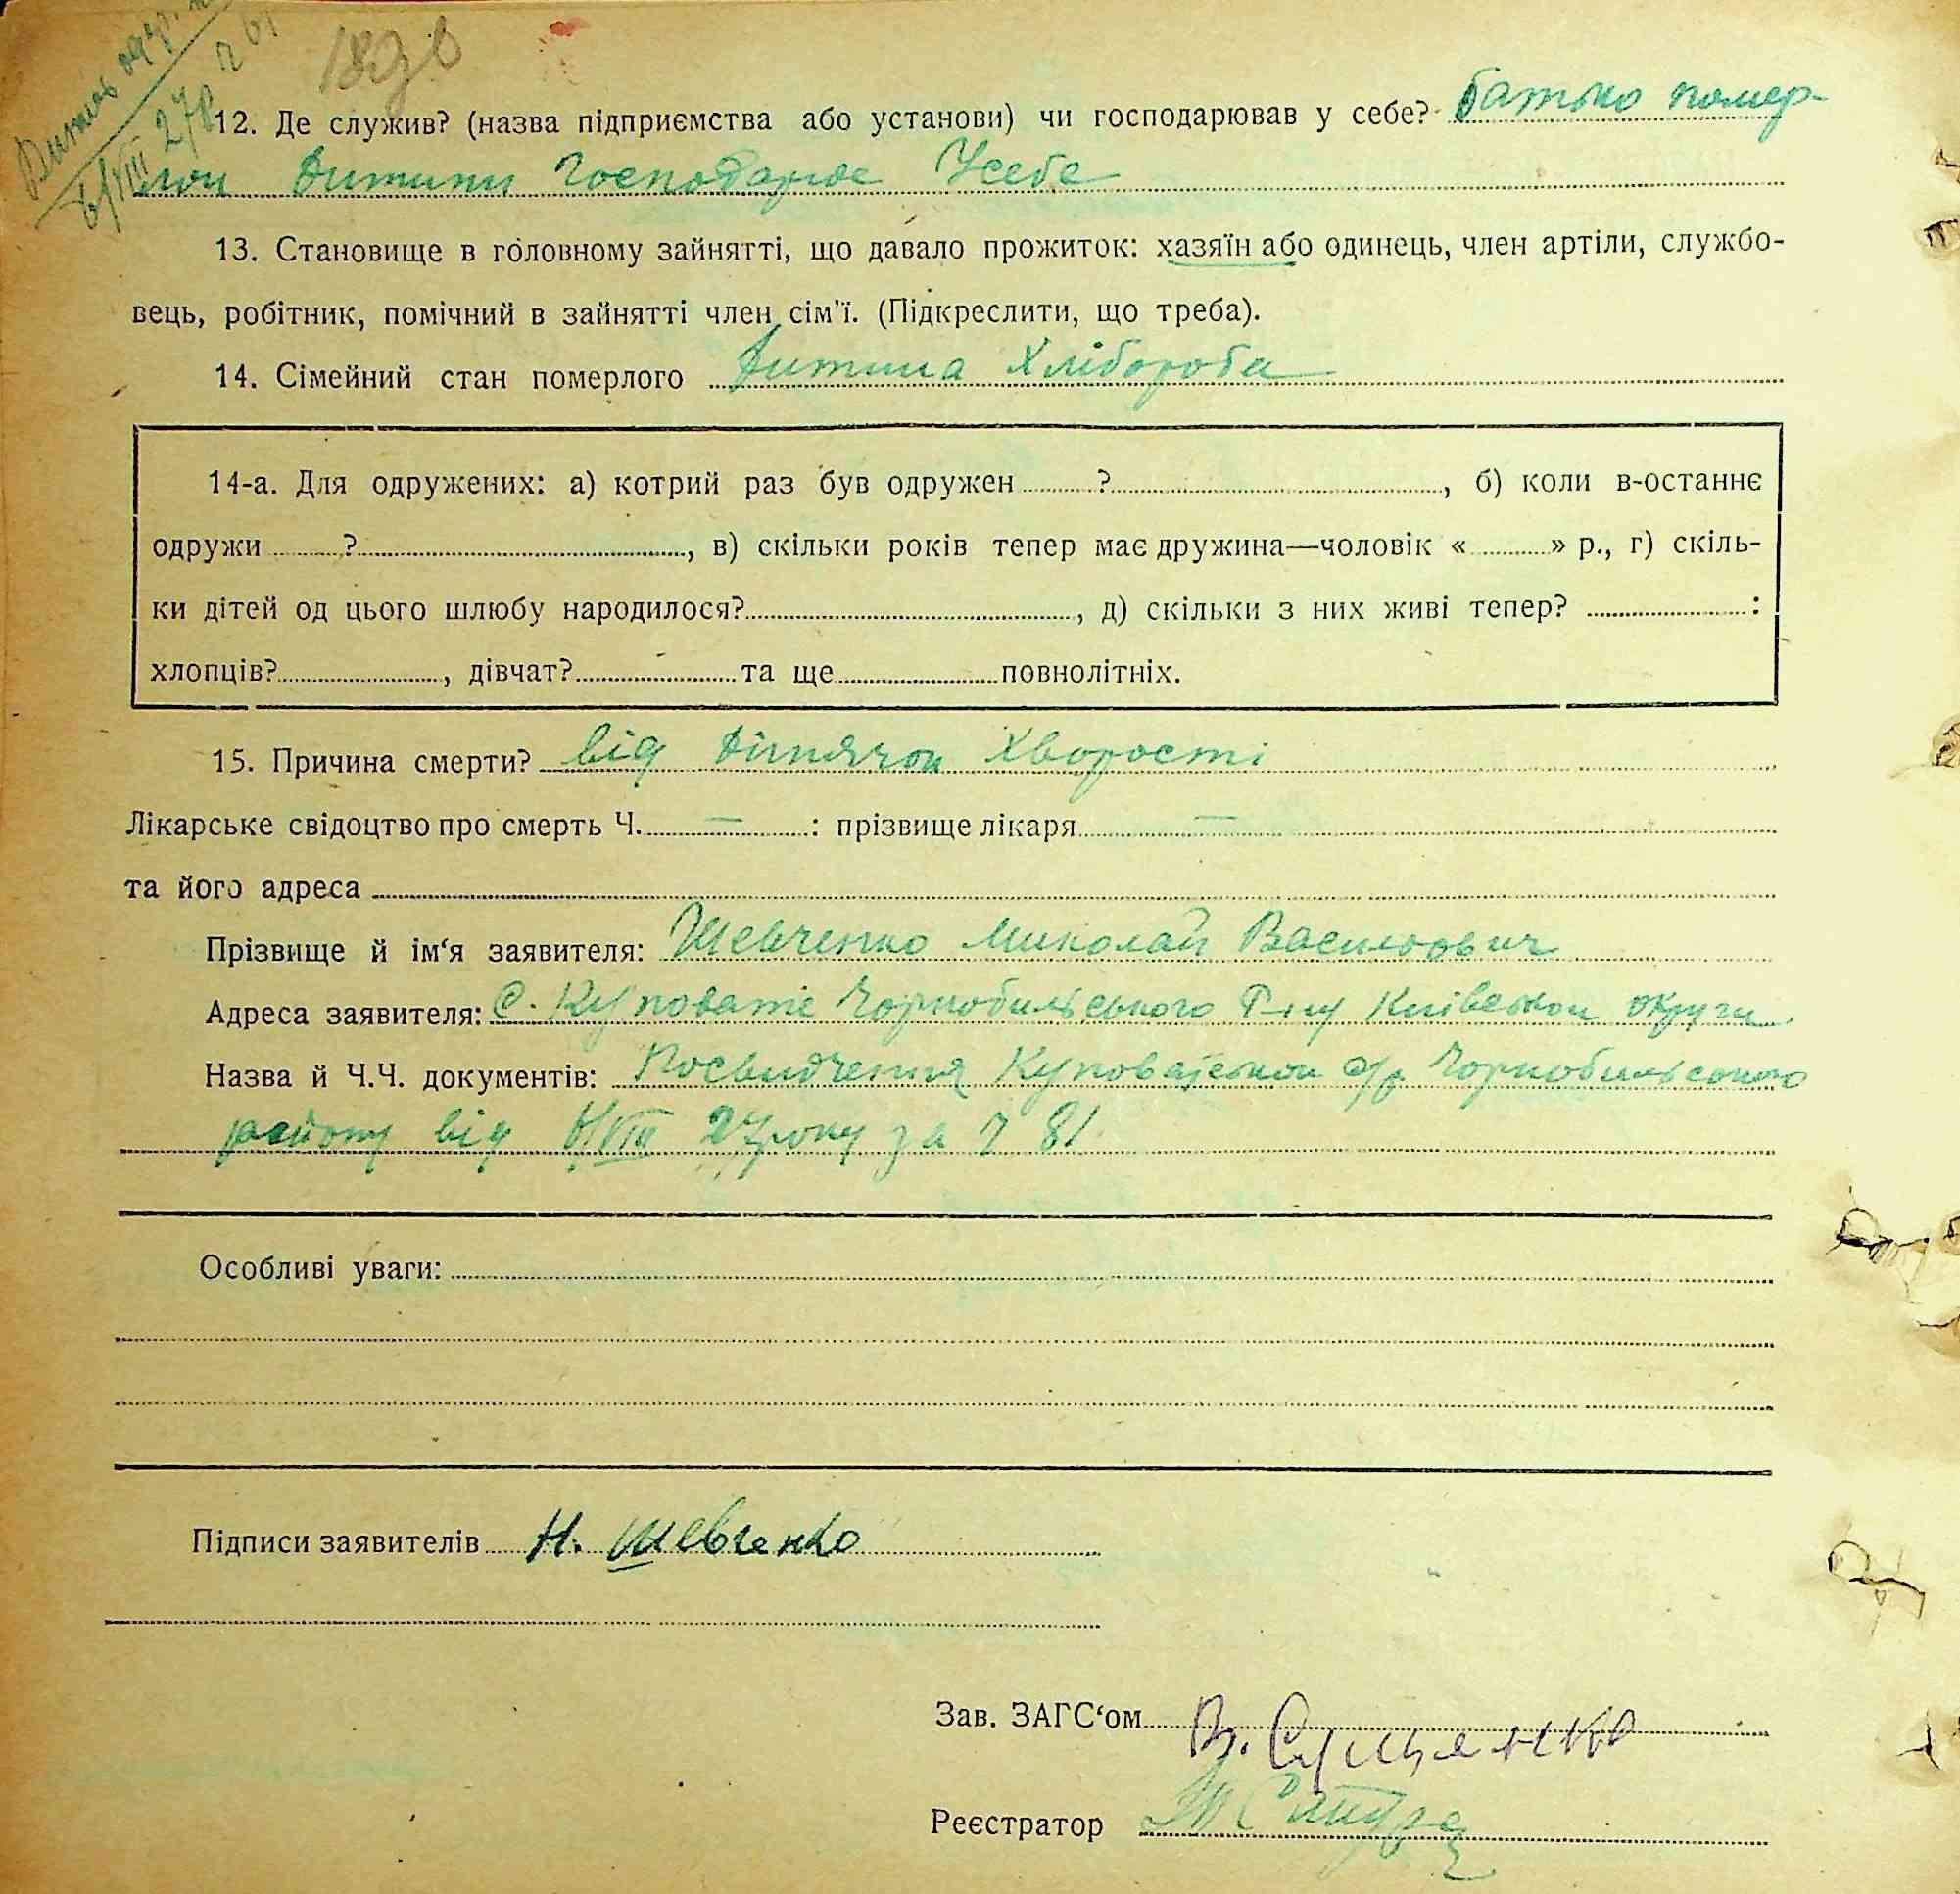 183 в
12. Де служив? (назва підприємства або установи) чи господарював у себе? батько помер-
лои дитини господарює Усебе
13. Становище в головному зайнятті, що давало прожиток: хазяїн або одинець, член артіли, службо-
вець, робітник, помічний в зайнятті член сім'ї. (Підкреслити, що треба).
14. Сімейний стан померлого дитина Хлібороба
14-а. Для одружених: а) котрий раз був одружен ?, б) коли в-останнє
одружи ?, в) скільки років тепер має дружина—чоловік « » р., г) скіль-
ки дітей од цього шлюбу народилося?, д) скільки з них живі тепер? :
хлопців?, дівчат? та ще повнолітніх.
15. Причина смерти? від дітячои Хворости
Лікарське свідоцтво про смерть Ч. — : прізвище лікаря —
та його адреса
Прізвище й ім‘я заявителя: Шевченко Миколай Васильович
Адреса заявителя: С. Куповате Чорнобильського Р-ну Київскои округи
Назва й Ч.Ч. документів: Посвидчення Куповатскои с/р Чорнобильського
району від 6/VIII 27 року за Ч 81
Особливі уваги:
Підписи заявителів Н. Шевченко
Зав. ЗАГС‘ом
Реєстратор